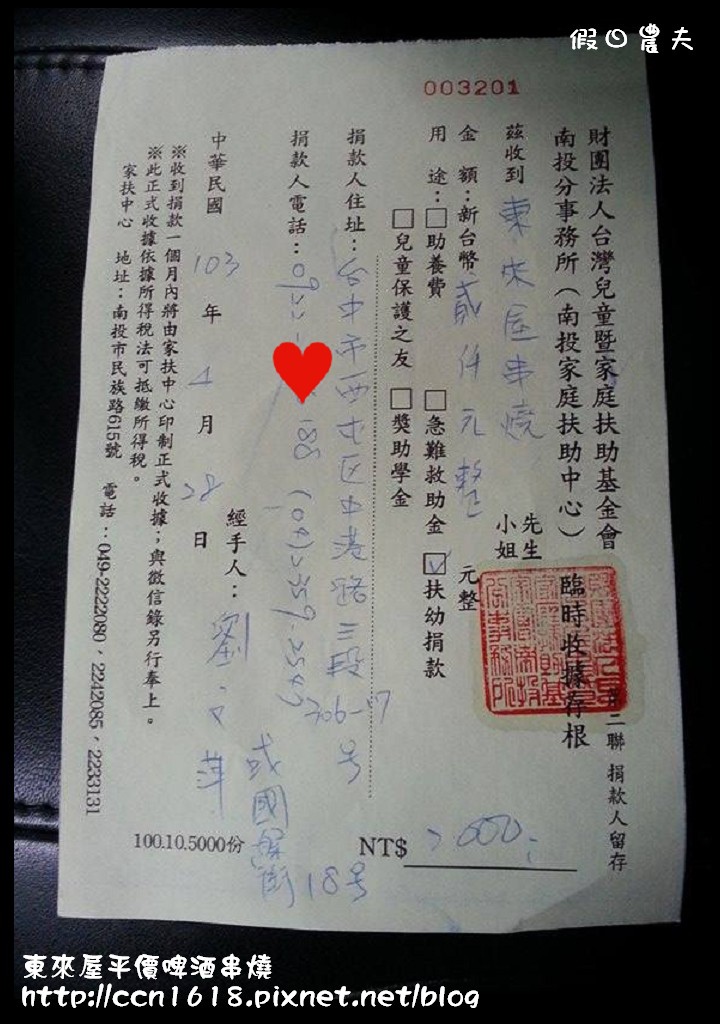 假日農夫
003201
財團法人台灣兒童暨家庭扶助基金會
南投分事務所(南投家庭扶助中心)
臨時收據存根
第二聯 捐款人留存
茲收到 東來屋串燒 先生 小姐
金額:新台幣 貳仟元整 元整
用途:□助養費 □急難救助金 ☑扶幼捐款
□兒童保護之友 □獎助學金
NT$ 2000
捐款人住址:台中市西屯区中港路三段 号
捐款人電話:
或國 街18号
經手人:劉
中華民國 103 年 4 月 28 日
※收到捐款一個月內將由家扶中心印制正式收據;與徵信錄另行奉上。
※此正式收據依據所得稅法可抵繳所得稅。
家扶中心 地址:南投市民族路615號 電話:049-2222080,2242085,2233131
100.10.5000份
東來屋平價啤酒串燒
http://ccn1618.pixnet.net/blog